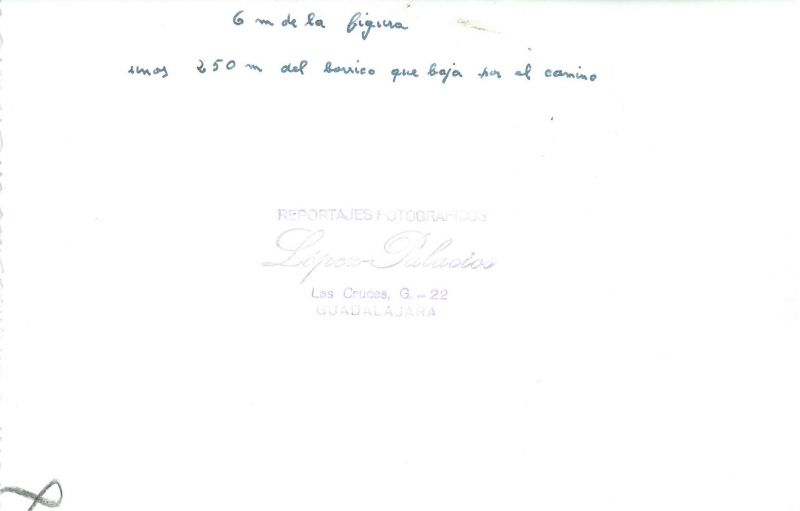 6 m de la figura
unos 250 m del borrico que baja por el camino
REPORTAJES FOTOGRAFICOS
López-Palacios
Las Cruces, G. - 22
GUADALAJARA